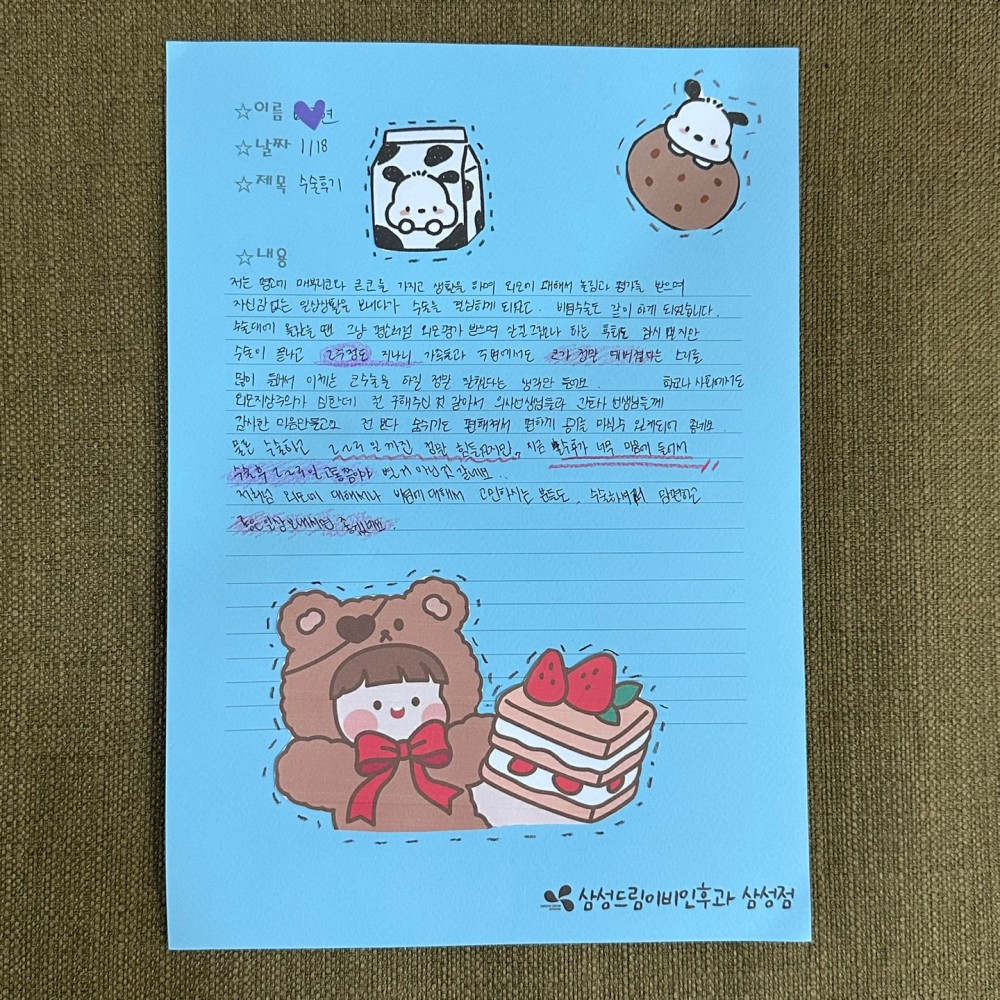 ☆이름 연
☆날짜 1/18
☆제목 수술후기
☆내용
저는 평소에 매부리코와 큰코를 가지고 생활을 하며 외모에 대해서 놀림과 평가를 받으며
자신감없는 일상생활을 보내다가 수술을 결심하게 되었고. 비염수술도 같이 하게 되었습니다.
수술대에 올랐을 땐 그냥 평소처럼 외모평가 받으며 살걸그랬나 하는 후회도 잠시 했지만
수술이 끝나고 2주정도 지나니 가족들과 직장에서도 코가 정말 예뻐졌다는 소리를
많이 들어서 이제는 코수술을 하길 정말 잘했다는 생각만 들어요. 학교나 사회에서도
외모지상주의가 심한데 절 구해주신 것 같아서 의사선생님들과 간호사 선생님들께
감사한 마음만들고요 전 보다 숨쉬기도 편해져서 편하게 공기를 마실수 있게되어 좋네요.
물론 수술하고 2~3일 까진 정말 힘들었지만, 지금 코가 너무 마음에 들어서
수술후 2~3일 고통쯤이야 별거 아닌것 같네요..
저처럼 외모에 대해서나 비염에 대해서 고민하시는 분들도, 수술하셔서 당당하고
좋은 일상 보내시면 좋겠네요.
삼성드림이비인후과 삼성점